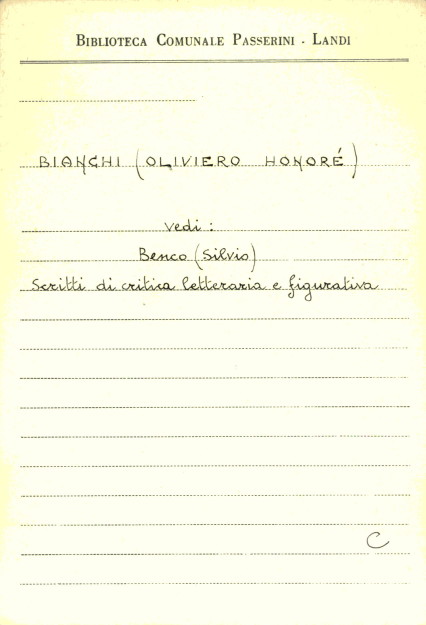 BIBLIOTECA COMUNALE PASSERINI - LANDI
BIANCHI (OLIVIERO HONORÉ)
vedi:
Benco (Silvio)
Scritti di critica letteraria e figurativa
C